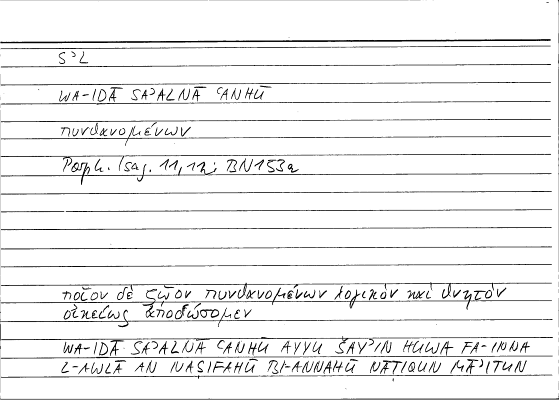 SʾL
WA-IḎĀ SAʾALNĀ ʿANHŪ
πυνθανομένων
Porph. Isag. 11,12; BN153a
ποῖον δὲ ζῷον πυνθανομένων λογικὸν καὶ θνητὸν
οἰκείως ἀποδώσομεν
WA-IḎĀ SAʾALNĀ ʿANHŪ AYYU ŠAYʾIN HUWA FA-INNA
L-AWLĀ AN NAṢIFAHŪ BI-ANNAHŪ NĀṬIQUN MĀʾITUN